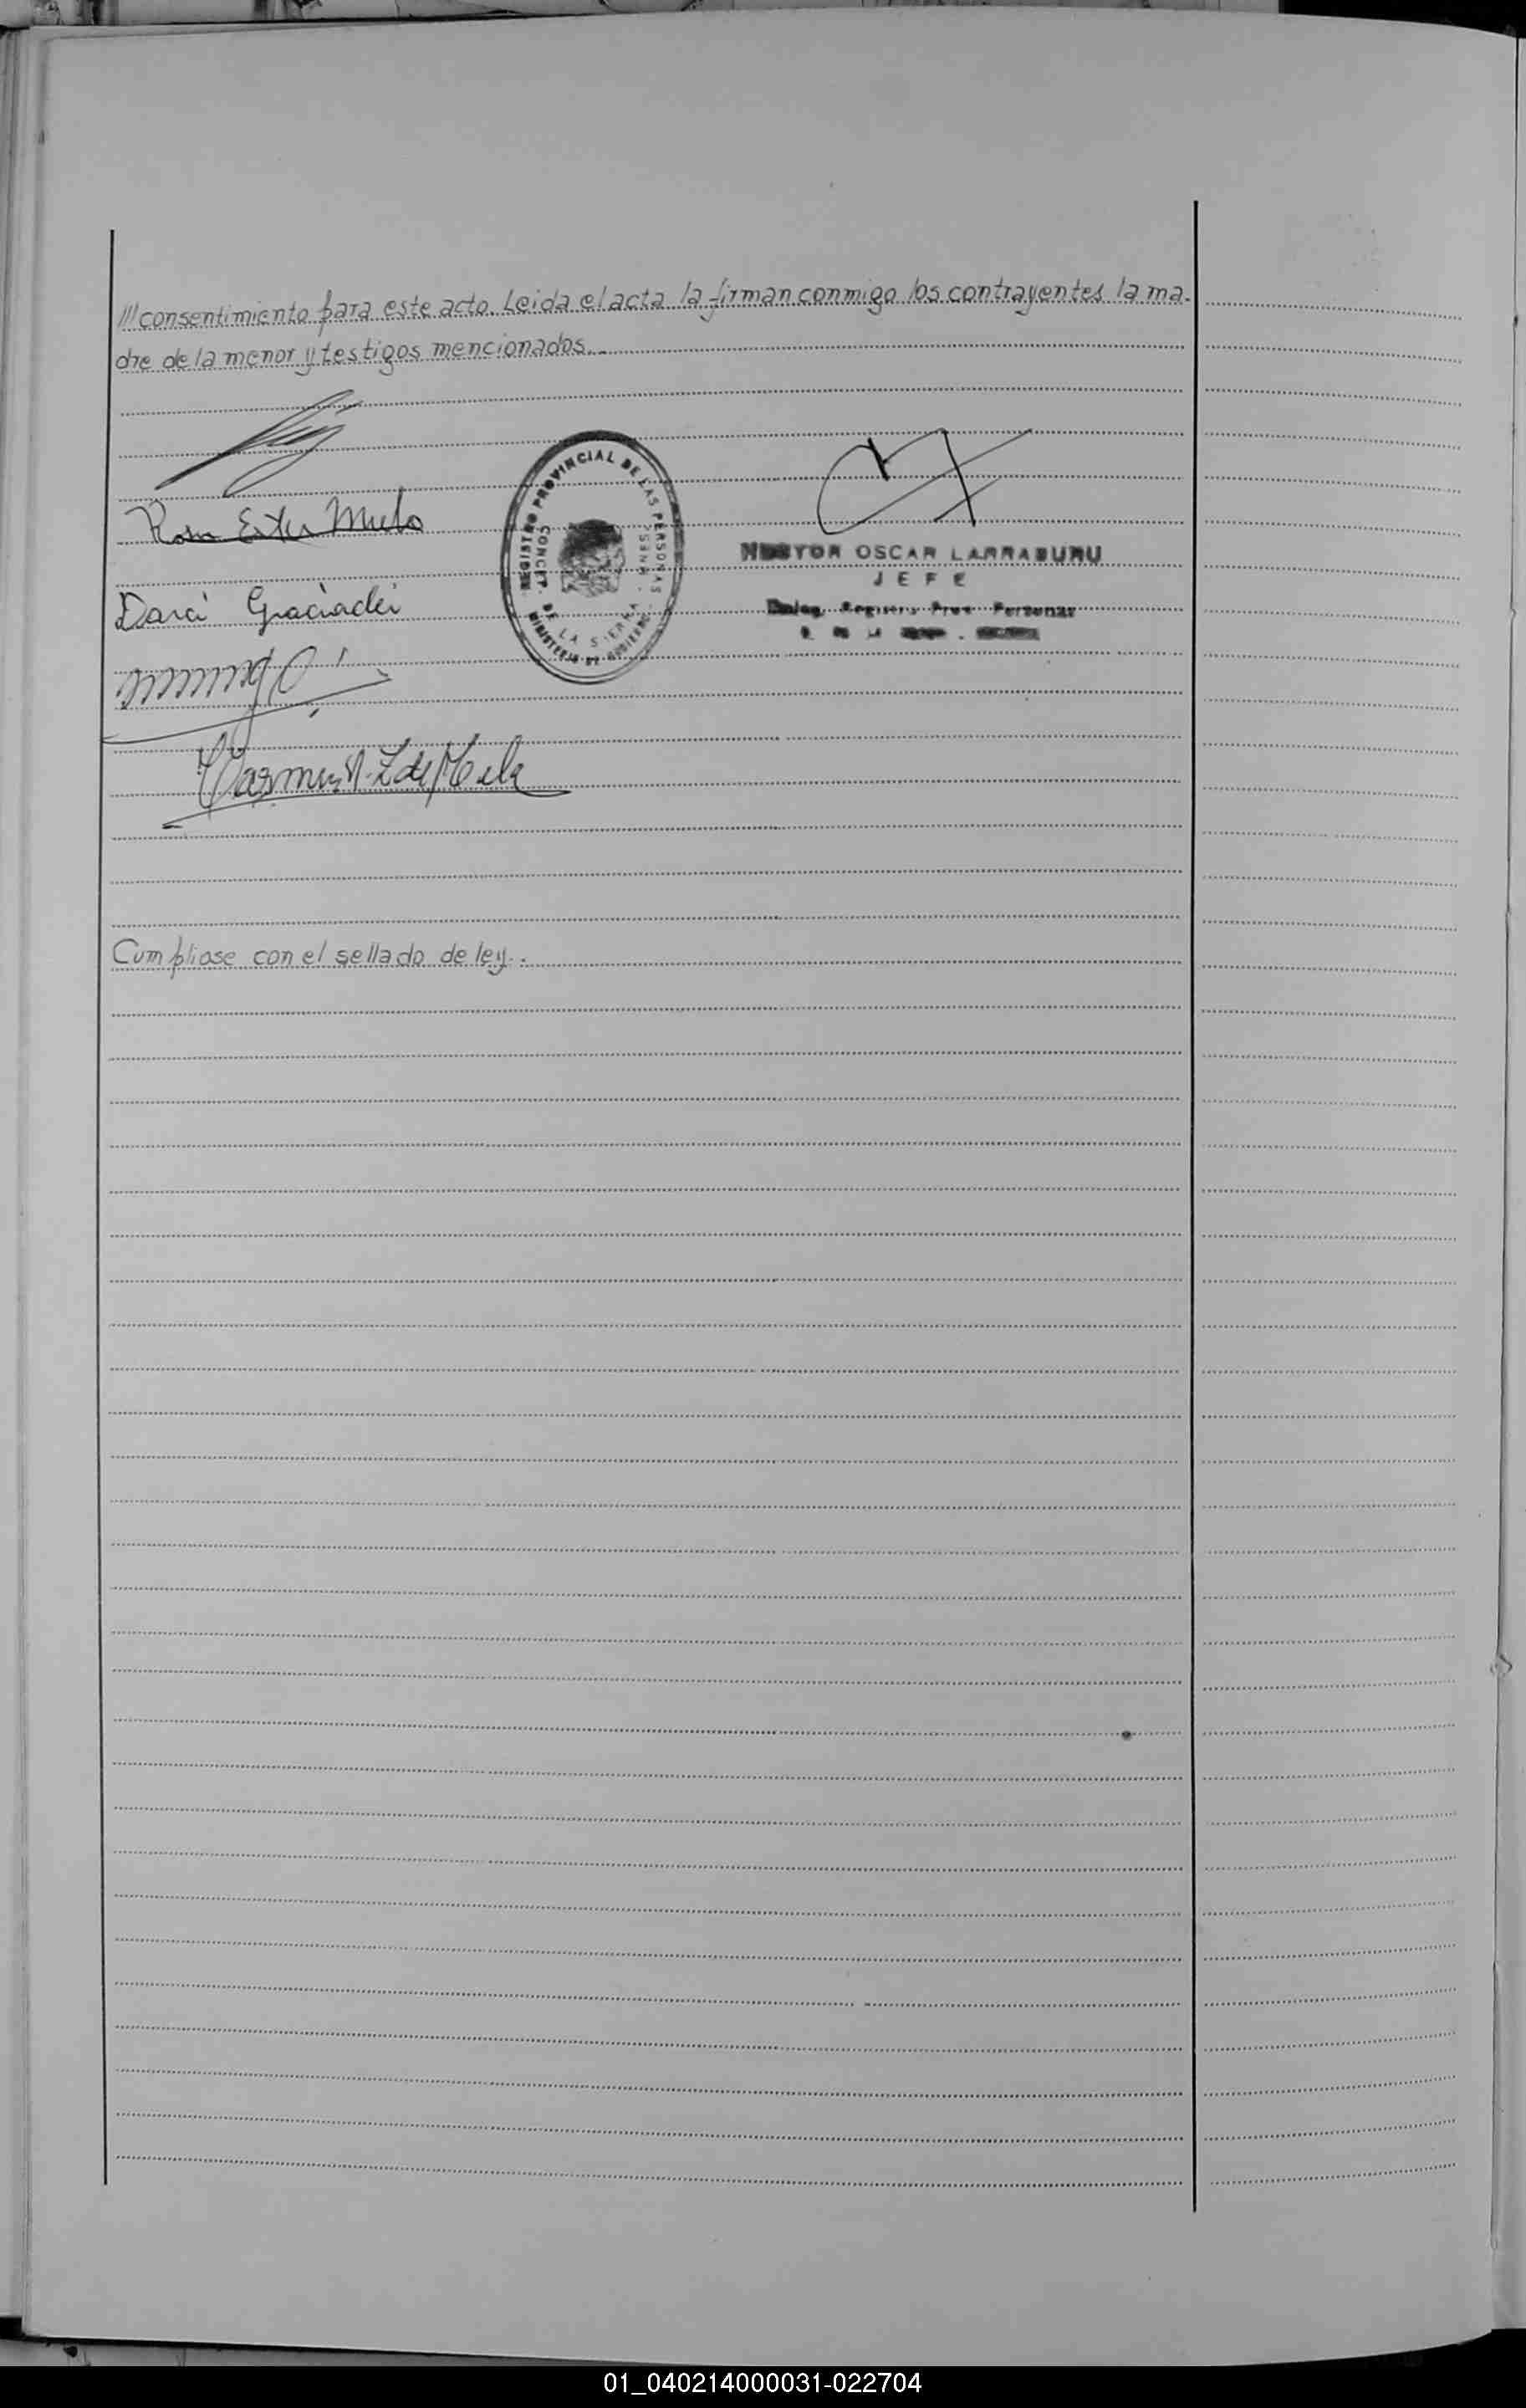 /// consentimiento para este acto. Leida el acta la firman conmigo los contrayentes la ma-
dre de la menor y testigos mencionados..
Rosa Ester
REGISTRO PROVINCIAL DE LAS PERSONAS
CONCEP. DE LA SIERRA - MNES.
MINISTERIO DE GOBIERNO
NESTOR OSCAR LARRABURU
JEFE
Deleg. Registro Prov. Personas
Darci Graciadei
Cumpliose con el sellado de ley..
01_040214000031-022704